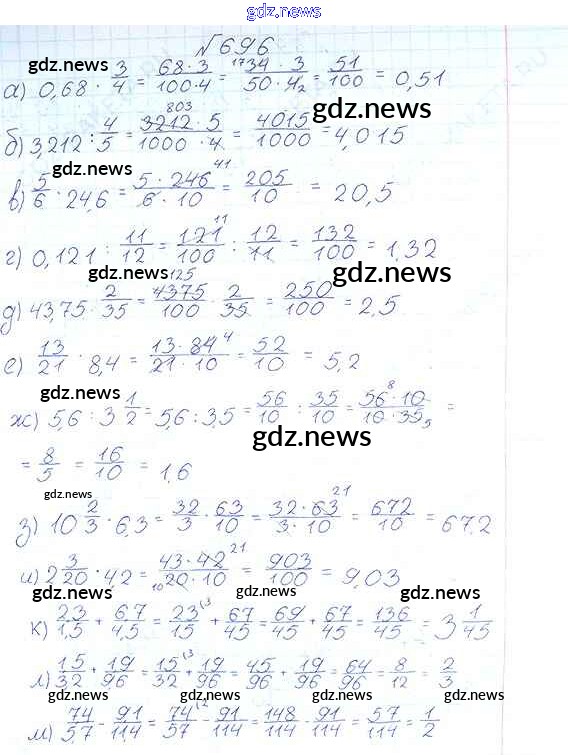 gdz.ru
№696
gdz.news
а) 0,68 · 3/4 = 68·3/100·4 = 17 34·3/50·4 2 = 51/100 = 0,51
gdz.news
б) 3,212 : 4/5 = 803 3212·5/1000·4 = 4015/1000 = 4,015
gdz.news
в) 5/6 · 24,6 = 5·246 41/6·10 = 205/10 = 20,5
г) 0,121 : 11/12 = 121 11/100 : 12/11 = 132/100 = 1,32
gdz.news
д) 43,75 · 2/35 = 4375 125/100 · 2/35 = 250/100 = 2,5
gdz.news
е) 13/21 · 8,4 = 13·84 4/21·10 = 52/10 = 5,2
gdz.news
ж) 5,6 : 3 1/2 = 5,6 : 3,5 = 56/10 : 35/10 = 56 8·10/10·35 5 =
gdz.news
= 8/5 = 16/10 = 1,6
gdz.news
з) 10 2/3 · 6,3 = 32/3 · 63/10 = 32·63 21/3·10 = 672/10 = 67,2
и) 2 3/20 · 4,2 = 43·42 21/10 20·10 = 903/100 = 9,03
gdz.news gdz.news gdz.news
к) 23/1,5 + 6,7/4,5 = 23/15 (3 + 67/45 = 69/45 + 67/45 = 136/45 = 3 1/45
gdz.news
л) 15/32 + 19/96 = 15/32 (3 + 19/96 = 45/96 + 19/96 = 64/96 = 8/12 = 2/3
gdz.news gdz.news gdz.news
м) 74/5,7 - 9,1/11,4 = 74/57 (2 - 91/114 = 148/114 - 91/114 = 57/114 = 1/2